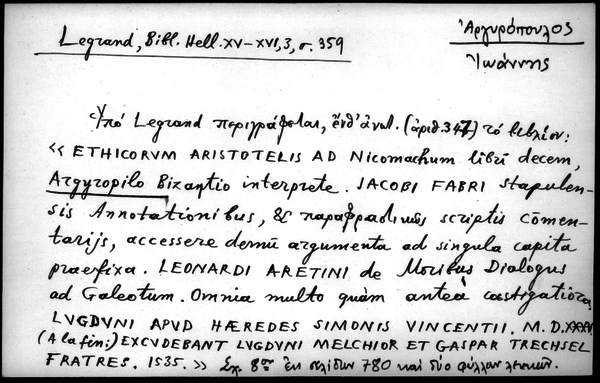 Legrand, Bibl. Hell. XV–XVI, 3, σ. 359
Ἀργυρόπουλος
Ἰωάννης
Ὑπό Legrand περιγράφεται, ἔνθ' ἀνωτ. (ἀριθ. 347) τό βιβλίον:
« ETHICORVM ARISTOTELIS AD Nicomachum libri decem,
Argyropilo Bizantio interprete. JACOBI FABRI Stapulen-
sis Annotationibus, & παραφραστικῶς scriptis cōmen-
tarijs, accessere demū argumenta ad singula capita
praefixa. LEONARDI ARETINI de Moribus Dialogus
ad Galeotum. Omnia multo quàm anteà castigatiora.
LVGDVNI APVD HÆREDES SIMONIS VINCENTII. M.D.XXXV.
(A la fin:) EXCVDEBANT LVGDVNI MELCHIOR ET GASPAR TRECHSEL
FRATRES. 1535. » Σχ. 8ον ἐκ σελίδων 780 καί δύο φύλλων λευκῶν.